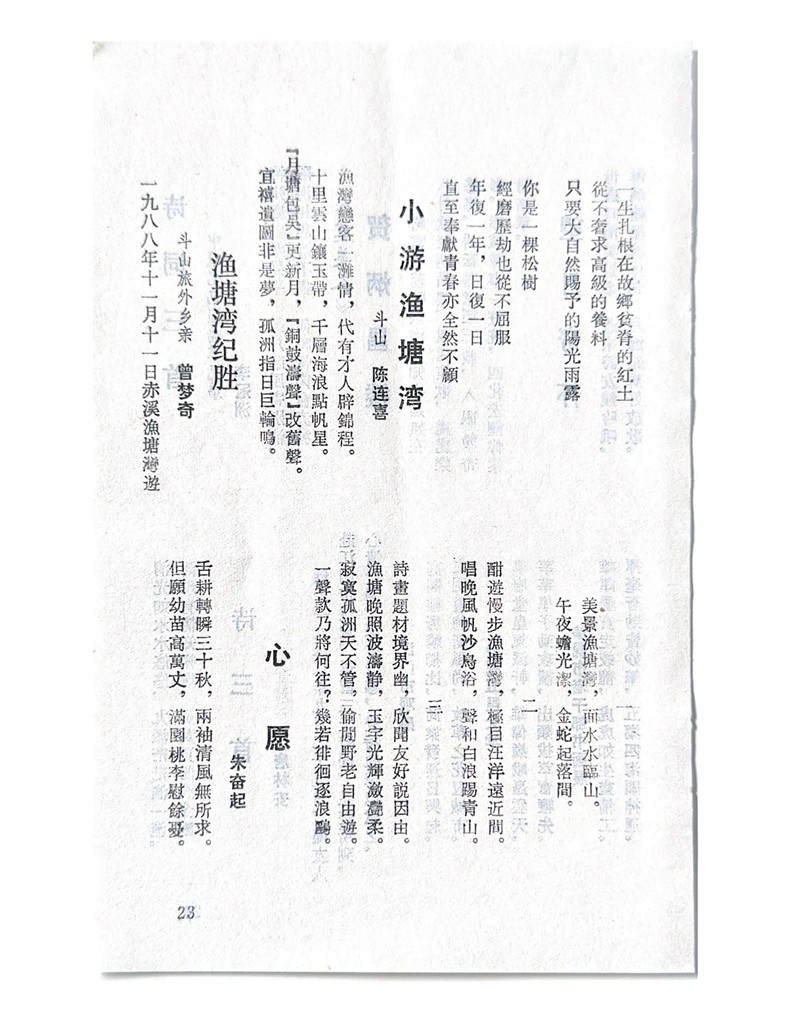 一生扎根在故鄉貧脊的紅土
從不奢求高級的養料
只要大自然賜予的陽光雨露
你是一棵松樹
經磨歷劫也從不屈服
年復一年，日復一日
直至奉獻青春亦全然不顧
小游渔塘湾
斗山 陈连喜
漁灣戀客一濰情，代有才人辟錦程。
十里雲山鑲玉帶，千層海浪點帆星。
『月塘包吳』更新月，『銅鼓濤聲』改舊聲。
宜禧遺圖非是夢，孤洲指日巨輪鳴。
渔塘湾纪胜
斗山旅外乡亲 曾梦奇
一九八八年十一月十一日赤溪漁塘灣遊
一
美景漁塘灣，面水水臨山。
午夜蟾光潔，金蛇起落間。
二
酣遊慢步漁塘灣，極目汪洋遠近間。
唱晚風帆沙鳥浴，聲和白浪踢青山。
三
詩畫題材境界幽，欣聞友好説因由。
漁塘晚照波濤静，玉宇光輝瀲灩柔。
寂寞孤洲天不管，偷閒野老自由遊。
一聲款乃將何往？幾若徘徊逐浪鷗。
心愿
朱奋起
舌耕轉瞬三十秋，兩袖清風無所求。
但願幼苗高萬丈，滿園桃李慰餘憂。
23